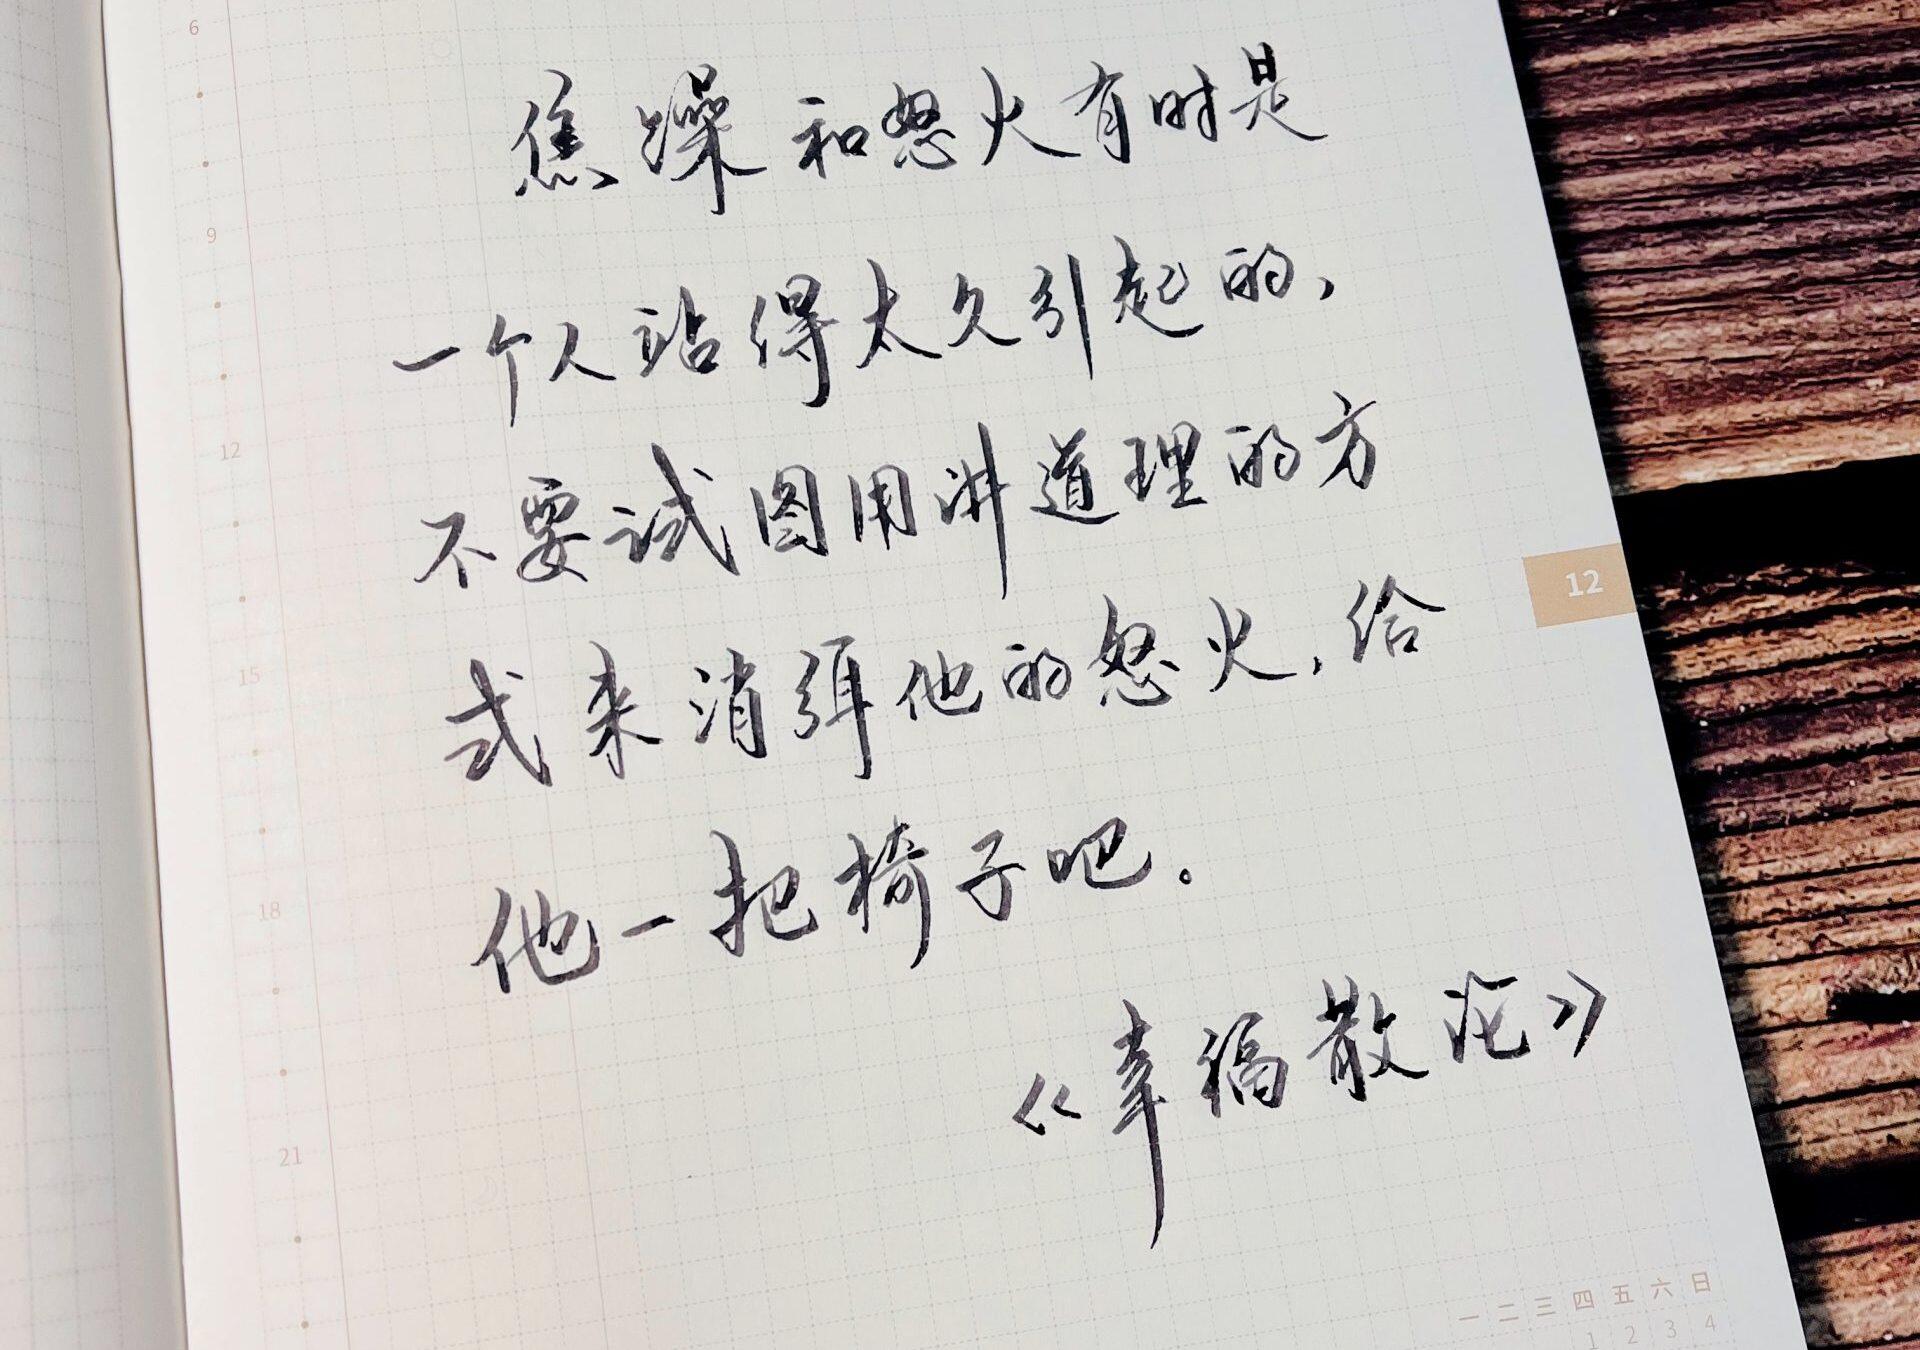 6
焦躁和怒火有时是
9
一个人站得太久引起的，
12
不要试图用讲道理的方
12
15
式来消弭他的怒火，给
18
他一把椅子吧。
《幸福散论》
21
一 二 三 四 五 六 日
1 2 3 4